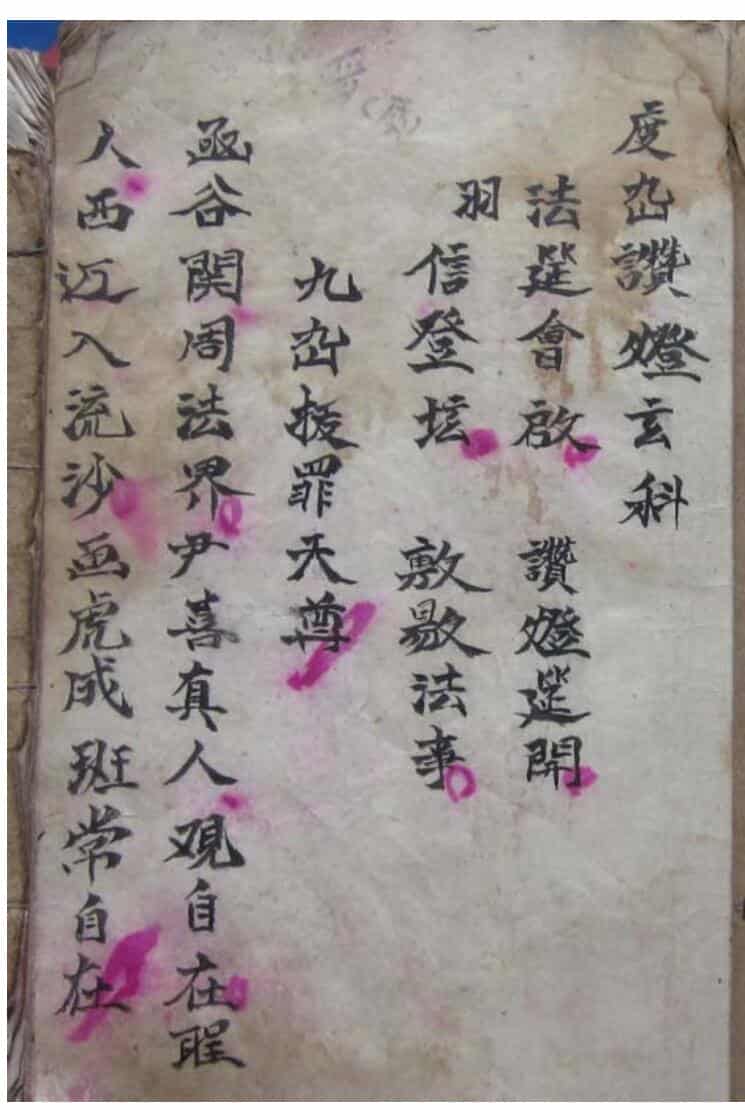 度幽讚燈玄科
法筵會啟 讚燈筵開
羽信登坛 敷敭法事
九幽拔罪天尊
函谷関周法界尹喜真人覌自在聖
人西迈入流沙画虎成班常自在